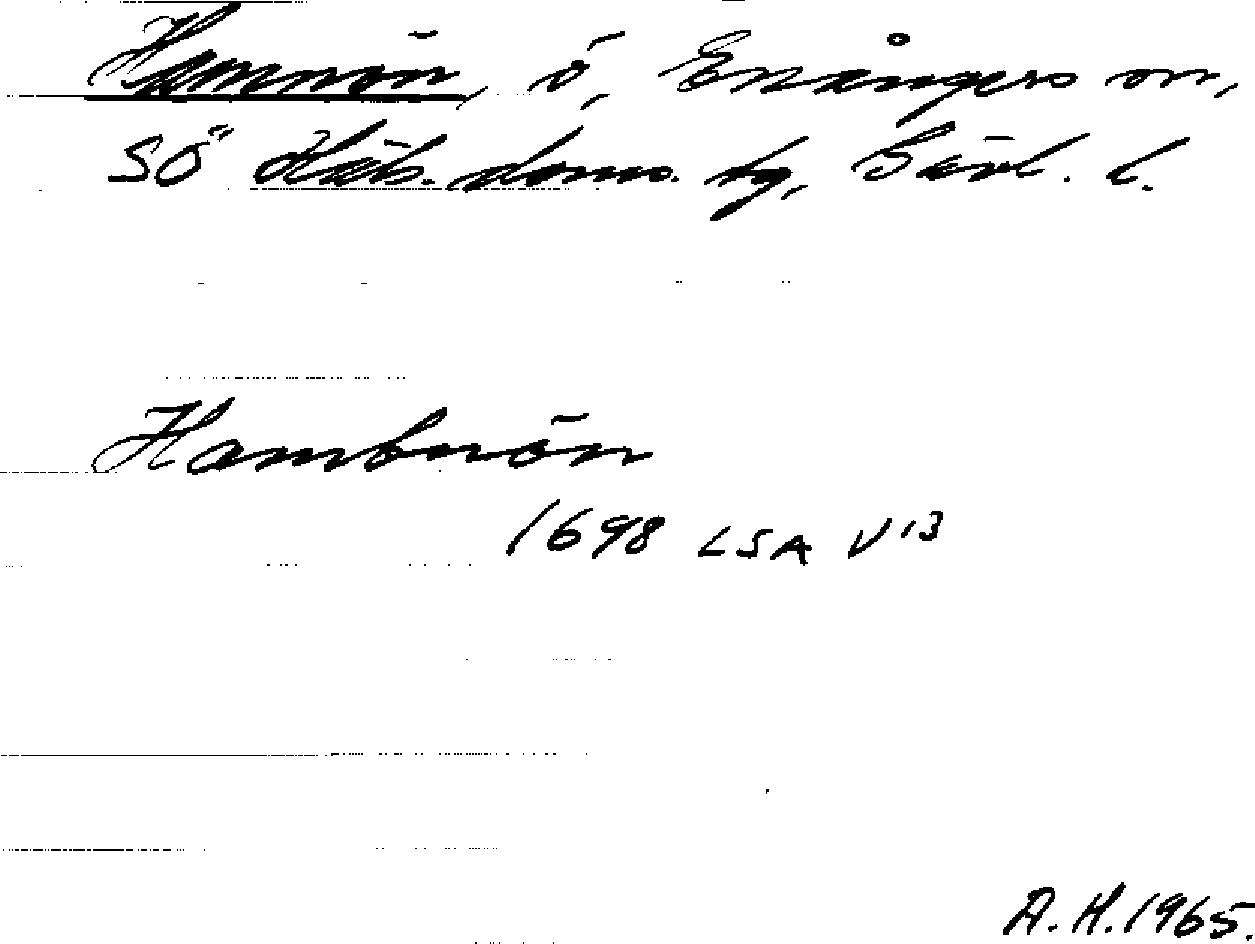 Hamnön, ö, Enångers sn,
SÖ Häls. doms. tg, Gävl. l.
Hambnön
1698 LSA V 13
A.H. 1965.